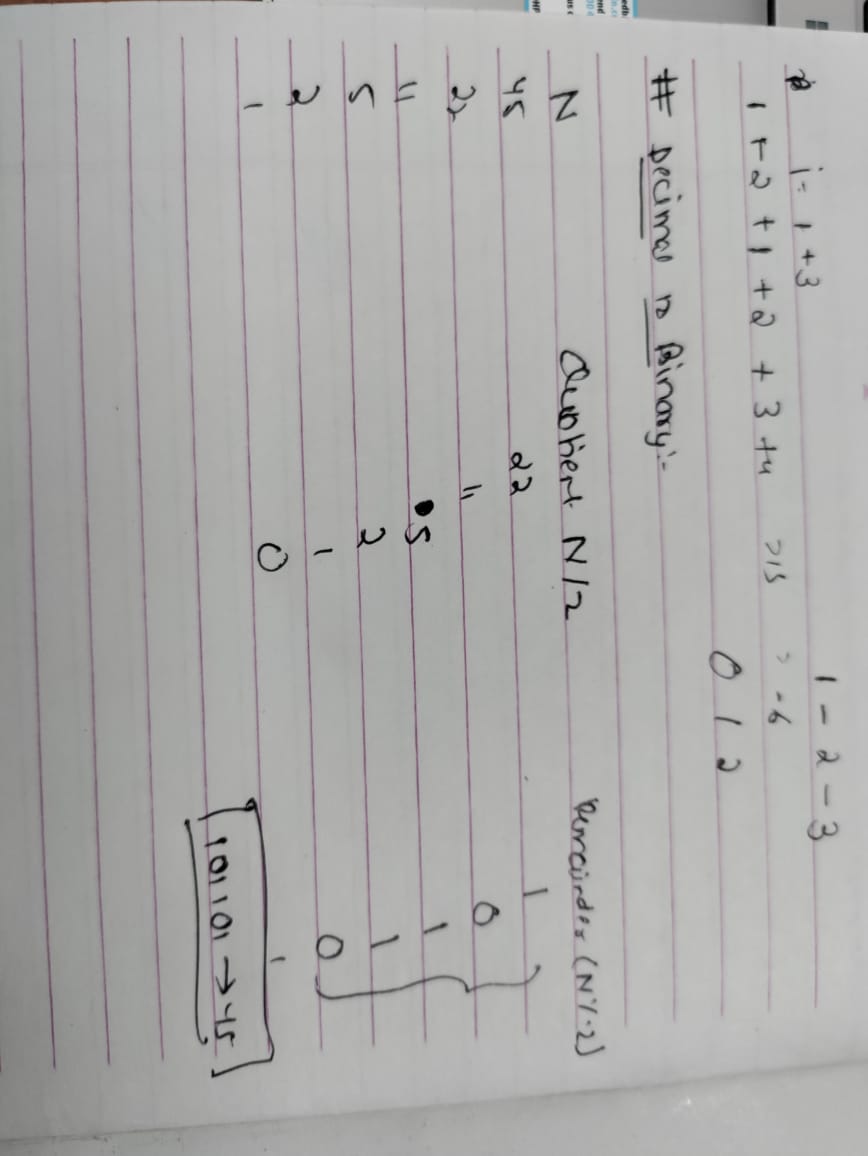 1 - 2 - 3
i = 1 + 3
1 + 2 + 1 + 2 + 3 + 4 > 15 > - 6
0 1 2
# Decimal to Binary :-
N Quotient N/2 Remainder (N%2)
45 22 1
22 11 0
11 5 1
5 2 1
2 1 0
1 0 1
101101 → 45